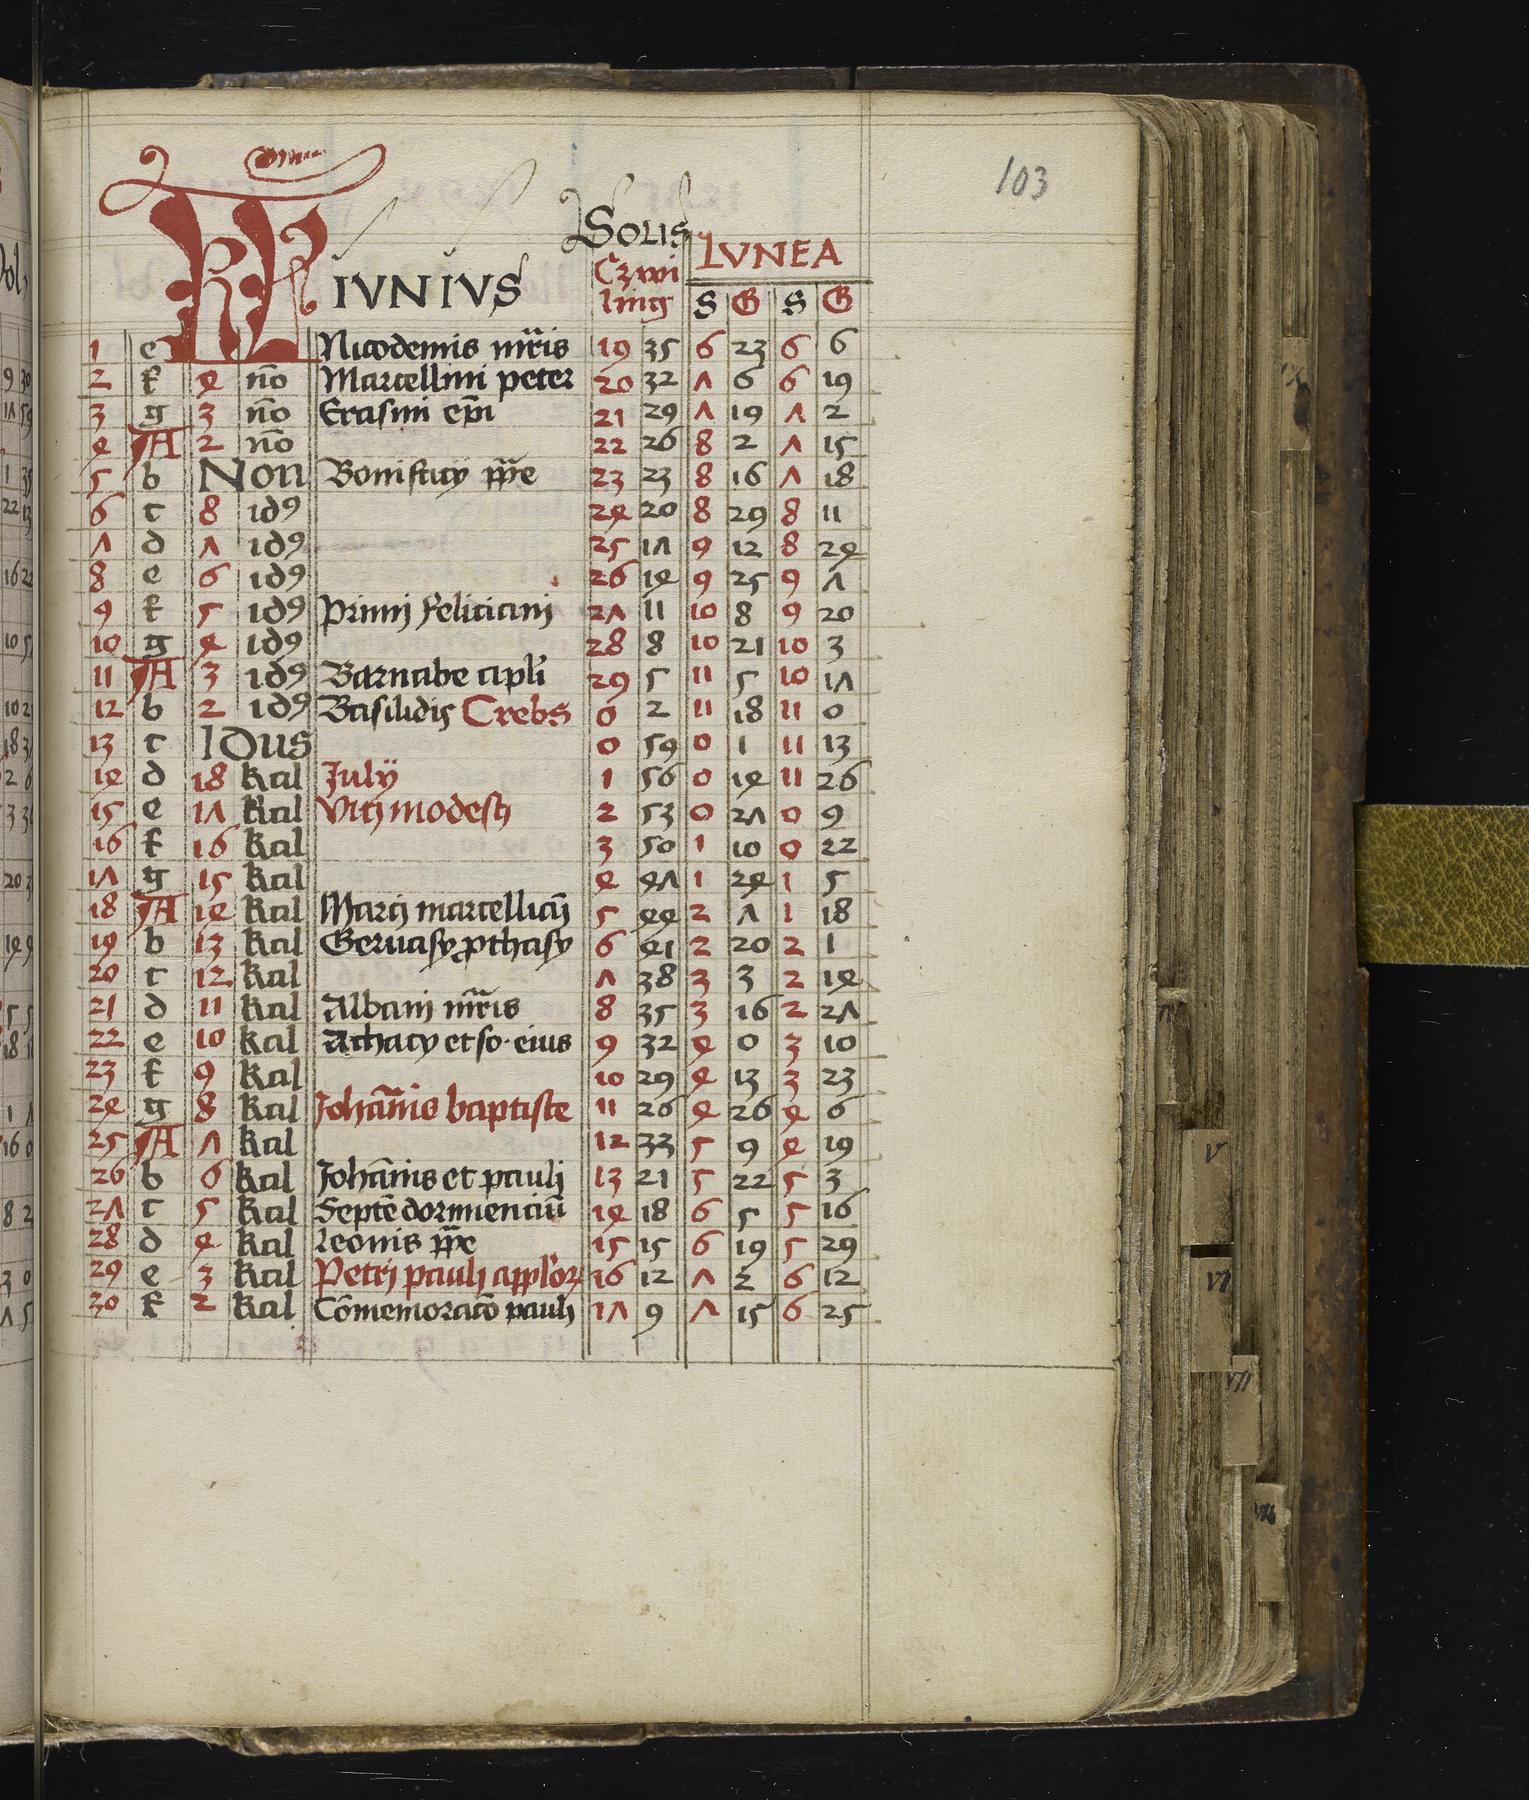 103
KL IVNIVS Solis LVNEA
Czwi
ling S G S G
1 e Nicodemis mr̃is 19 35 6 23 6 6
2 f 4 no̅ Marcellini peter 20 32 7 6 6 19
3 g 3 no̅ Erasmi ep̃i 21 29 7 19 7 2
4 A 2 no̅ 22 26 8 2 7 15
5 b Non Bonifacij pp̃e 23 23 8 16 7 18
6 c 8 id9 24 20 8 29 8 11
7 d 7 id9 25 17 9 12 8 24
8 e 6 id9 26 14 9 25 9 7
9 f 5 id9 Primj feliciani 27 11 10 8 9 20
10 g 4 id9 28 8 10 21 10 3
11 A 3 id9 Barnabe apl̃i 29 5 11 5 10 17
12 b 2 id9 Basilidis Crebs 0 2 11 18 11 0
13 c Idus 0 59 0 1 11 13
14 d 18 kal Julij 1 56 0 14 11 26
15 e 17 kal Vitj modestj 2 53 0 27 0 9
16 f 16 kal 3 50 1 10 0 22
17 g 15 kal 4 47 1 24 1 5
18 A 14 kal Marcj marcelliani 5 44 2 7 1 18
19 b 13 kal Geruasy ꝓthasy 6 41 2 20 2 1
20 c 12 kal 7 38 3 3 2 14
21 d 11 kal Albani mr̃is 8 35 3 16 2 27
22 e 10 kal Achacy et so. eius 9 32 4 0 3 10
23 f 9 kal 10 29 4 13 3 23
24 g 8 kal Joha̅nis baptiste 11 26 4 26 4 6
25 A 7 kal 12 33 5 9 4 19
26 b 6 kal Joha̅nis et pauli 13 21 5 22 5 3
27 c 5 kal Septe̅ dormienciu̅ 14 18 6 5 5 16
28 d 4 kal leonis pp̃e 15 15 6 19 5 29
29 e 3 kal Petrj paulj appl'oꝝ 16 12 7 2 6 12
30 f 2 kal Co̅memoracõ paulj 17 9 7 15 6 25
V
VI
VII